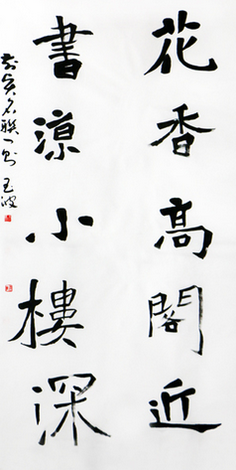 花香高閣近
書涼小樓深
名聯一則